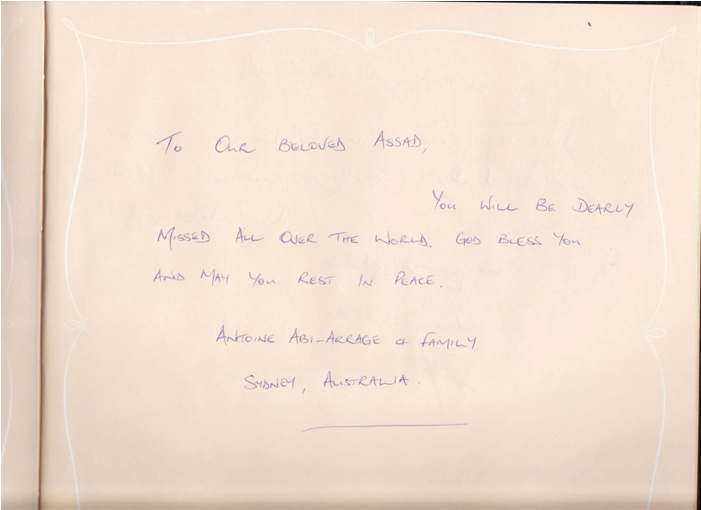 To Our Beloved Assad,
You Will Be Dearly
Missed All Over The World. God Bless You
And May You Rest In Peace.
Antoine Abi-Arrage & Family
Sydney, Australia.